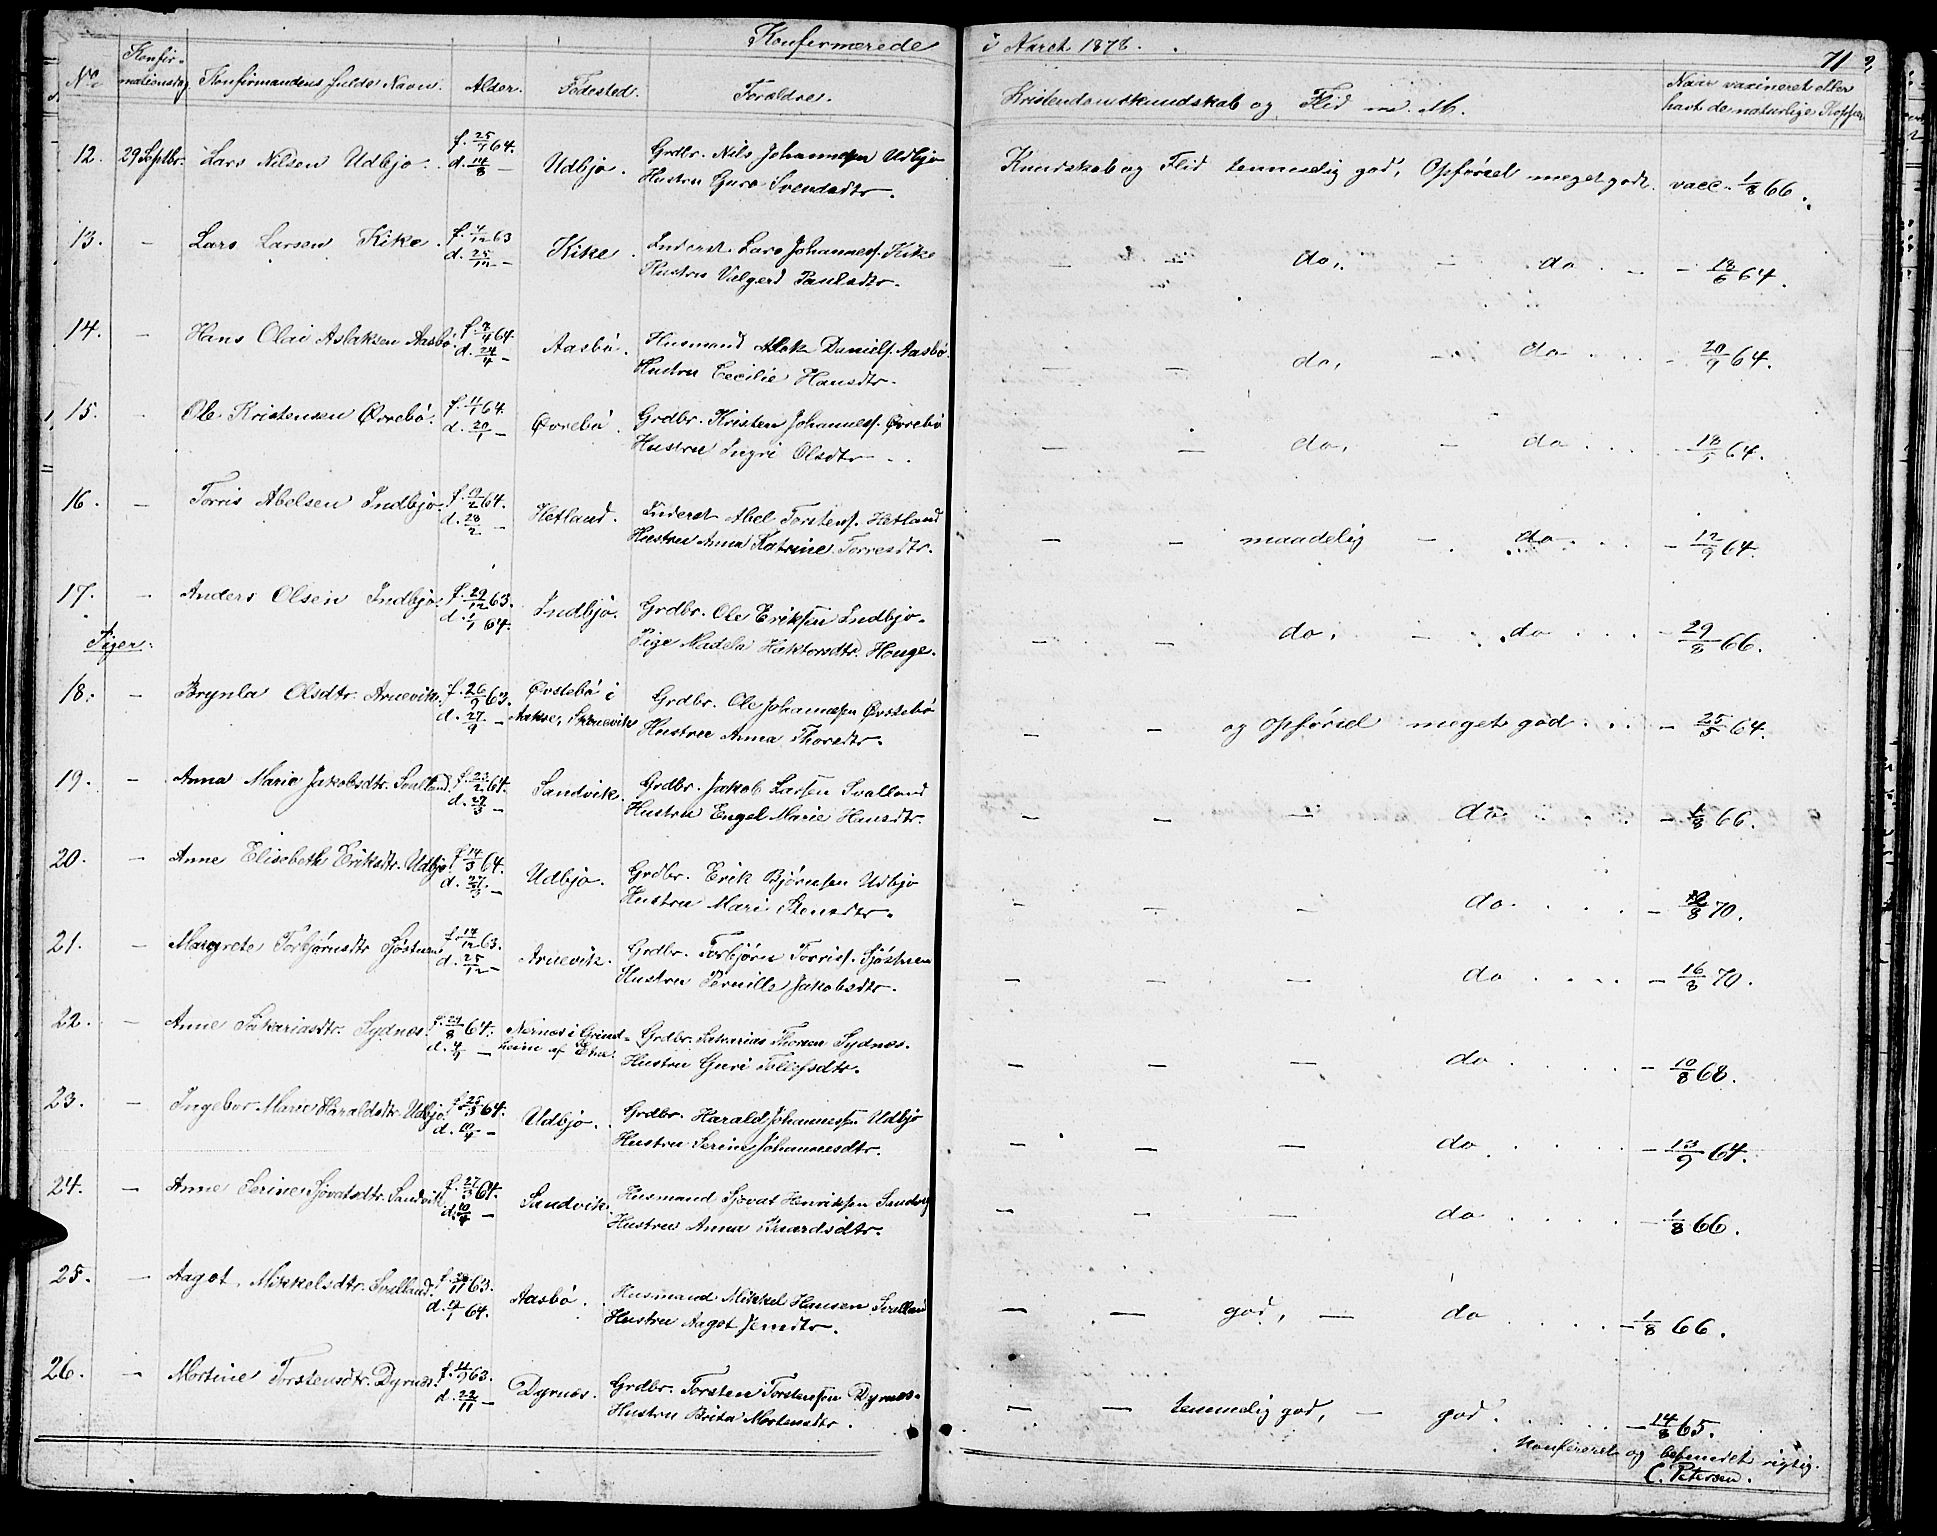 Konfirmerede i Aaret 1878. 71
No. Konfirmationsdag. Konfirmandens fulde Navn. Alder. Fødested. Forældre. Kristendomskundskab og Flid m. M. Naar vaxineret eller havt de naturlige Kopper
12. 29 Septbr. Lars Nilsen Udbjo. f. 25/7 64. d. 14/8 — Udbjo. Grdbr. Nils Johannesen Udbjo Hustru Guro Svendsdtr. Kundskab og Flid temmelig god, Opførsel meget god. vacc. 1/8 66.
13. — Lars Larsen Kike. f. 4/12 63 d. 25/12 — Kike. Inderst Lars Johannesf. Kike Hustru Valgerd Paulsdtr. — — do, — do — 18/6 64.
14. — Hans Olai Aslaksen Aasbø. f. 7/4 64. d. 24/4 — Aasbø. Husmand Aslak Danielf. Aasbø. Hustru Cecilie Hansdtr. — — do, — do — 20/9 64.
15. — Ole Kristensen Øvrebø. f. 11/1 64. d. 20/1 — Øvrebø. Grdbr. Kristen Johannesf. Øvrebø Hustru Ingri Olsdtr. — — do, — do — 18/5 64.
16. — Torris Abelsen Indbjo. f. 19/2 64. d. 28/2 — Hetland. Inderst Abel Torstens. Hetland Hustru Anna Katrine Torresdtr. — — maadelig — do — 12/9 64.
17. — Anders Olsen Indbjo. f. 29/12 63. d. 1/1 64. Indbjo. Grdbr. Ole Eriksen Indbjo. Pige Madela Haktorsdtr. Houge. — — do, — do — 29/8 66.
Piger.
18. — Brynla Olsdtr. Arnevik. f. 26/9 63. d. 27/9 — Øvstebø i Aakre, Skonevik Grdbr. Ole Johannesen Øvstebø Hustru Anna Thoredtr. — — og Opførsel meget god. — 25/5 64.
19. — Anna Marie Jakobsdtr. Svalland. f. 23/2 64. d. 27/3 — Sandvik. Grdbr. Jakob Larsen Svalland Hustru Engel Marie Hansdtr. — — — do — 1/8 66.
20. — Anne Elisabeth Eriksdtr. Udbjo. f. 14/3 64. d. 27/3 — Udbjo. Grdbr. Erik Bjørnsen Udbjo Hustru Mari Stensdtr. — — — do. — 8 70.
21. — Margrete Torbjørnsdtr. Sjøstuen f. 17/12 63. d. 25/12 — Arnevik. Grdbr. Torbjørn Torrisf. Sjøstuen Hustru Pernille Jakobsdtr. — — — do — 16/8 70.
22. — Anne Sakariasdtr. Sydnes. f. 29/8 64. d. 4/9 — Nernes i Grindheim af Etne. Grdbr. Sakarias Thorsen Sydnes. Hustru Guri Tollefsdtr. — — — do — 10/8 68.
23. — Ingebor Marie Haraldsdtr. Udbjo. f. 25/3 64. d. 10/4 — Udbjo. Grdbr. Harald Johannessen Udbjo Hustru Serine Johannesdtr. — — — do. — 13/9 64.
24. — Anne Serine Sjovatsdtr. Sandvik f. 27/3 64. d. 10/4 — Sandvik. Husmand Sjovat Henriksen Sandvig Hustru Anna — — — do — 1/8 66.
25. — Aagot Mikkelsdtr. Svalland. f. 11 63. d. 64. Aasbø. Husmand Mikkel Hansen Svalland Hustru Aagot Jensdtr. — — god, — do — 1/8 66.
26. — Martine Torstensdtr. Dyrnes. f. 11/9 63. d. 22/11 — Dyrnes. Grdbr. Torsten Torstensen Dyrnes. Hustru Brita Mortensdtr. — — temmelig god, — god. — 14/8 65.
Konfereret og befundet rigtig.
C. Petersen.